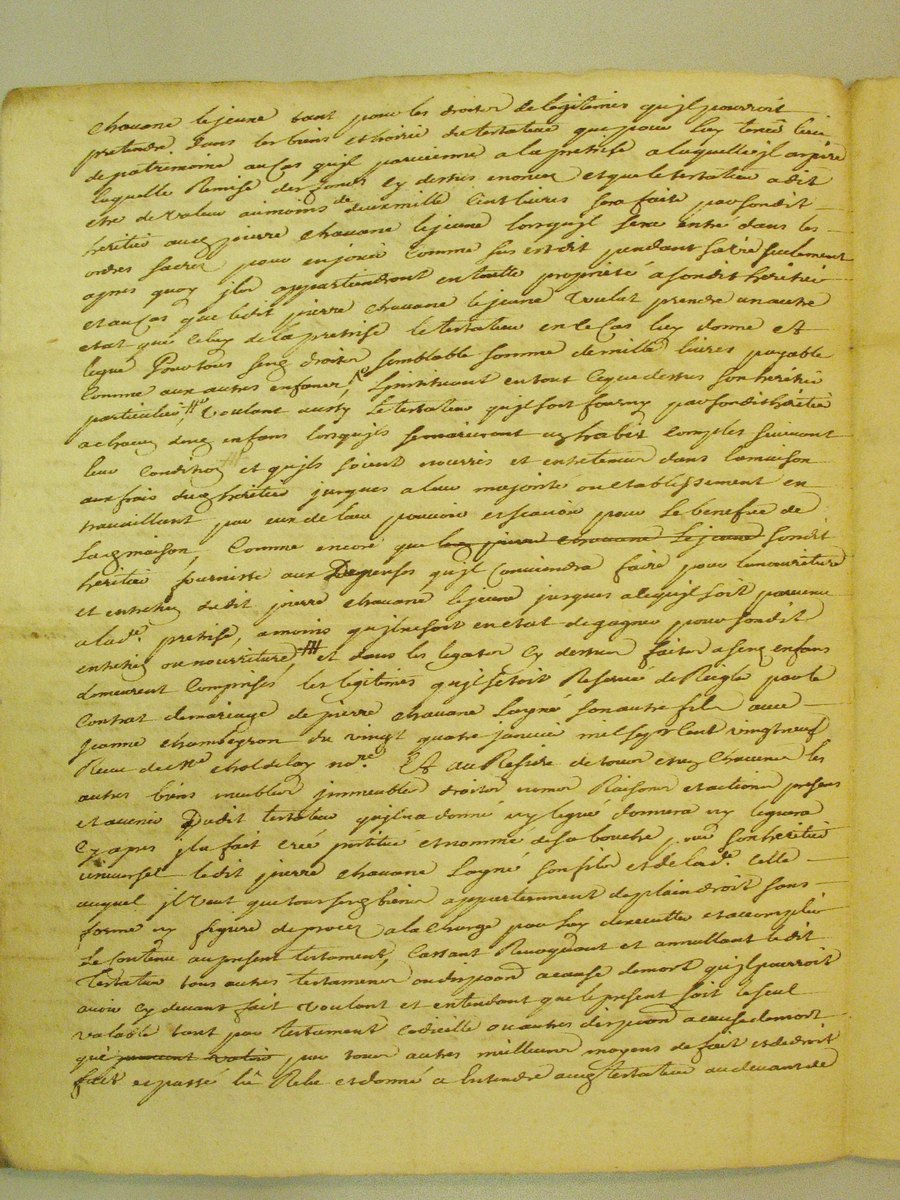 Chavane le jeune tant pour les droits de legitimes qu'jl pourroit
pretendre dans les biens et hoirie du testateur que pour luy tenir lieu
de patrimoine au cas qu'jl parvienne a la pretrise a laquelle jl aspire
laquelle Remise des fonds cy dessus enoncez et que le testateur a dit
etre de valeur au moins de deux mille Cent livres sera faite par sondit
heritier audt pierre Chavane le jeune lorsqu'jl sera entré dans les
ordres sacrez pour en jouir comme sus est dit pendant sa vie seulement
apres quoy jls appartiendront en toutte proprieté a sondit heritier
et au Cas que ledit pierre Chavane le jeune voulut prendre un autre
etat que Celuy de la pretrise le testateur en ce Cas luy donne et
legue Pour tous sesd droits semblable somme de mille livres payable
Comme aux autres enfans l'jnstituant en tout ce que dessus son heritier
particulier, voulant aussy le testateur qu'jl soit fourny par sondit heritier
a chacun desd enfans lorsqu'jls se marieront un habit complet suivant
leur Condition et qu'jls soient nourris et entretenus dans la maison
aux frais dud heritier jusques a leur majorité ou etablissement en
travaillant par eux de leur pouvoir et scavoir pour le benefice de
lad maison, Comme encore que led pierre Chavane Le jeune sondit
heritier fournisse aux Depenses qu'jl Conviendra faire pour la nourriture
et entretien dudit pierre Chavane le jeune jusques a ce qu'jl soit parvenu
a lade. pretrise, a moins qu'jl ne soit en etat de gagner pour sondit
entretien ou nourriture, et dans les legats cy dessus faits a sesd enfans
demeurent Comprises les legitimes qu'jl s'etoit Reservé de Regler par le
Contrat de mariage de pierre Chavane L'ayné son autre fils avec
jeanne Chambeyron du vingt quatre janvier mil sept cent vingt neuf
Recu de Me. Chol delay nore. Et au Residu de tous et uns Chacuns les
autres biens meubles jmmeubles droits noms Raisons et actions presens
et avenir Dudit testateur qu'jl n'a donné ny legué donnera ny leguera
Cy apres jl a fait créé jnstitué et nommé de sa bouche pour son heritier
universel ledit pierre Chavane L'ayné son fils et de lade. Celle
auquel jl veut que tous sesd biens appartiennent de plain droit sans
forme ny figure de procez a la Charge par luy d'executter et accomplir
Le Contenu au present testament, Cassant Revoquant et annullant ledit
Testateur tous autres testamens ou dispoons a cause de mort qu'jl pourroit
avoir cy devant fait voulant et entendant que le present soit le seul
valable tant par testament codicille ou autres dispoon a cause de mort
que pouvant valoir par tous autres meilleurs moyens de fait et de droit
fait et passé lû Relu et donné a Entendre audt testateur au devant de